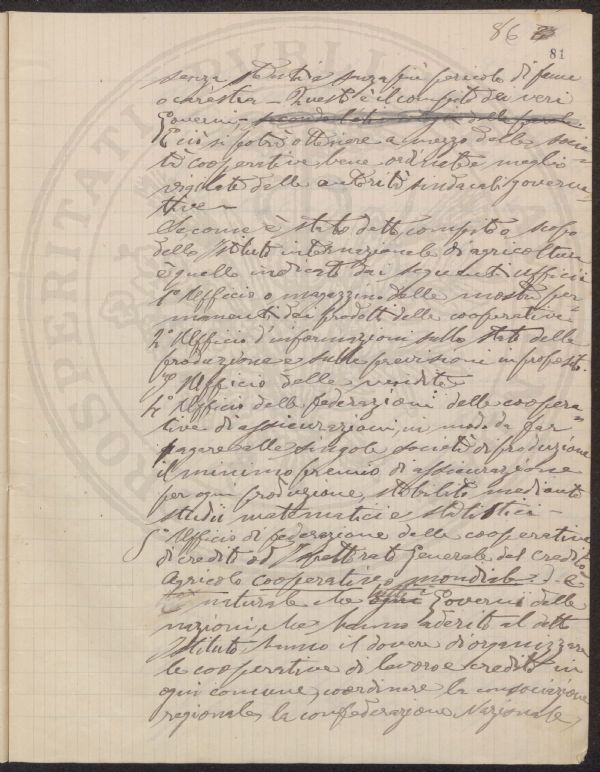 86
81
senza stenti e senza più pericolo di fame
o carestia – Questo è il compito dei veri
Governi –
E ciò si potrà ottenere a mezzo delle socie=
tà cooperative bene ordinate e meglio
vigilate dalle autorità sindacali governa=
tive –
Secome è stato detto compito e scopo
dello Istituto internazionale di agricoltura
è quello indicato dai seguenti ufficii
1° Ufficio o magazzino delle mostre per=
manenti dei prodotti delle cooperative
2° Ufficio d'informazioni sullo stato della
produzione e sulle previsioni in proposito
3° Ufficio delle vendite
4° Ufficio delle federazioni delle coopera=
tive di assicurazioni, in modo da far
pagare alle singole società di produzione
il minimo premio di assicurazione
per ogni produzione, stabilito mediante
studii matematici e statistici –
5° Ufficio di federazione delle cooperative
di credito od Ispettorato Generale del credito
agricolo cooperativo mondiale. È
naturale che i Governi delle
nazioni che hanno aderito al detto
Istituto, hanno il dovere di organizzare
le cooperative di lavoro e credito in
ogni comune, coordinare la consociazione
regionale, la confederazione Nazionale,